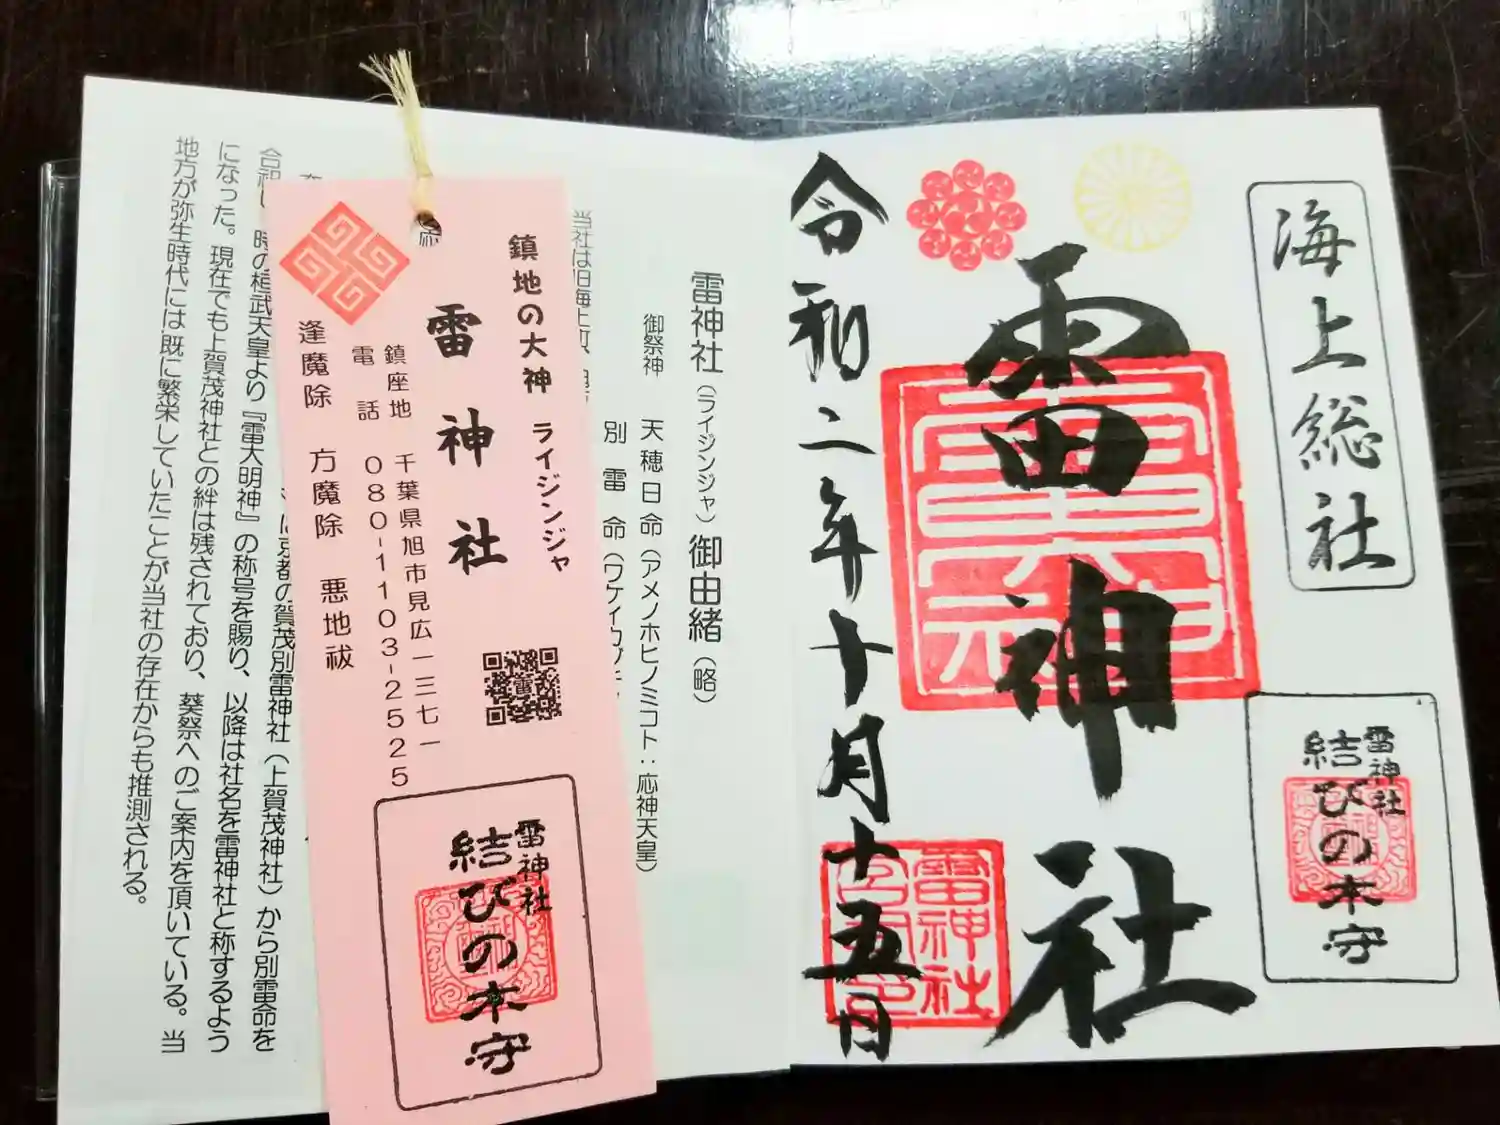 海上総社
雷神社
令和二年十月十五日
雷神社
雷神社
結びの木守
雷神社（ライジンジャ）御由緒（略）
御祭神 天穂日命（アメノホヒノミコト：応神天皇）
別雷命（ワケイカヅチ
当社は旧海上町、
鎮地の大神 ライジンジャ
雷神社
鎮座地 千葉県旭市見広一三七一
電話 080-1103-2525
逢魔除 方魔除 悪地祓
雷神社
結びの木守
は京都の賀茂別雷神社（上賀茂神社）から別雷命を
合祀し 時の桓武天皇より『雷大明神』の称号を賜り、以降は社名を雷神社と称するよう
になった。現在でも上賀茂神社との絆は残されており、葵祭へのご案内を頂いている。当
地方が弥生時代には既に繁栄していたことが当社の存在からも推測される。